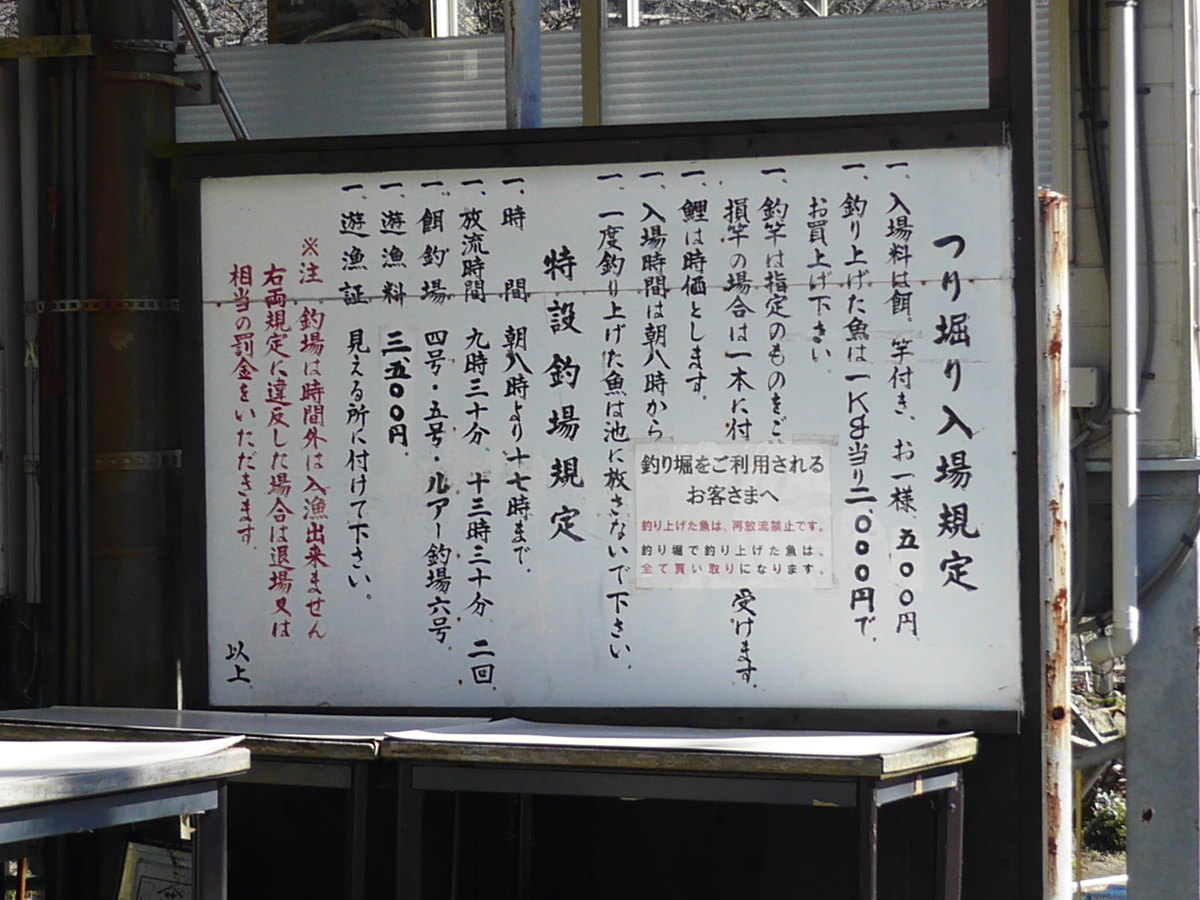 つり堀り入場規定
一、入場料は餌。竿付き、お一様、五〇〇円
一、釣り上げた魚は一Kg当り二、〇〇〇円で、
お買上げ下さい
一、釣竿は指定のものをご
損竿の場合は一本に付
受けます。
一、鯉は時価とします。
一、入場時間は朝八時から
一、一度釣り上げた魚は池に放さないで下さい。
釣り堀をご利用される
お客さまへ
釣り上げた魚は、再放流禁止です。
釣り堀で釣り上げた魚は、
全て買い取りになります。
特設釣場規定
一、時 間 朝八時より十七時まで。
一、放流時間 九時三十分、十三時三十分、二回
一、餌釣場 四号・五号・ルアー釣場六号。
一、遊漁料 三、五〇〇円。
一、遊漁証 見える所に付けて下さい。
※注 釣場は時間外は入漁出来ません
右両規定に違反した場合は退場又は
相当の罰金をいただきます。
以上